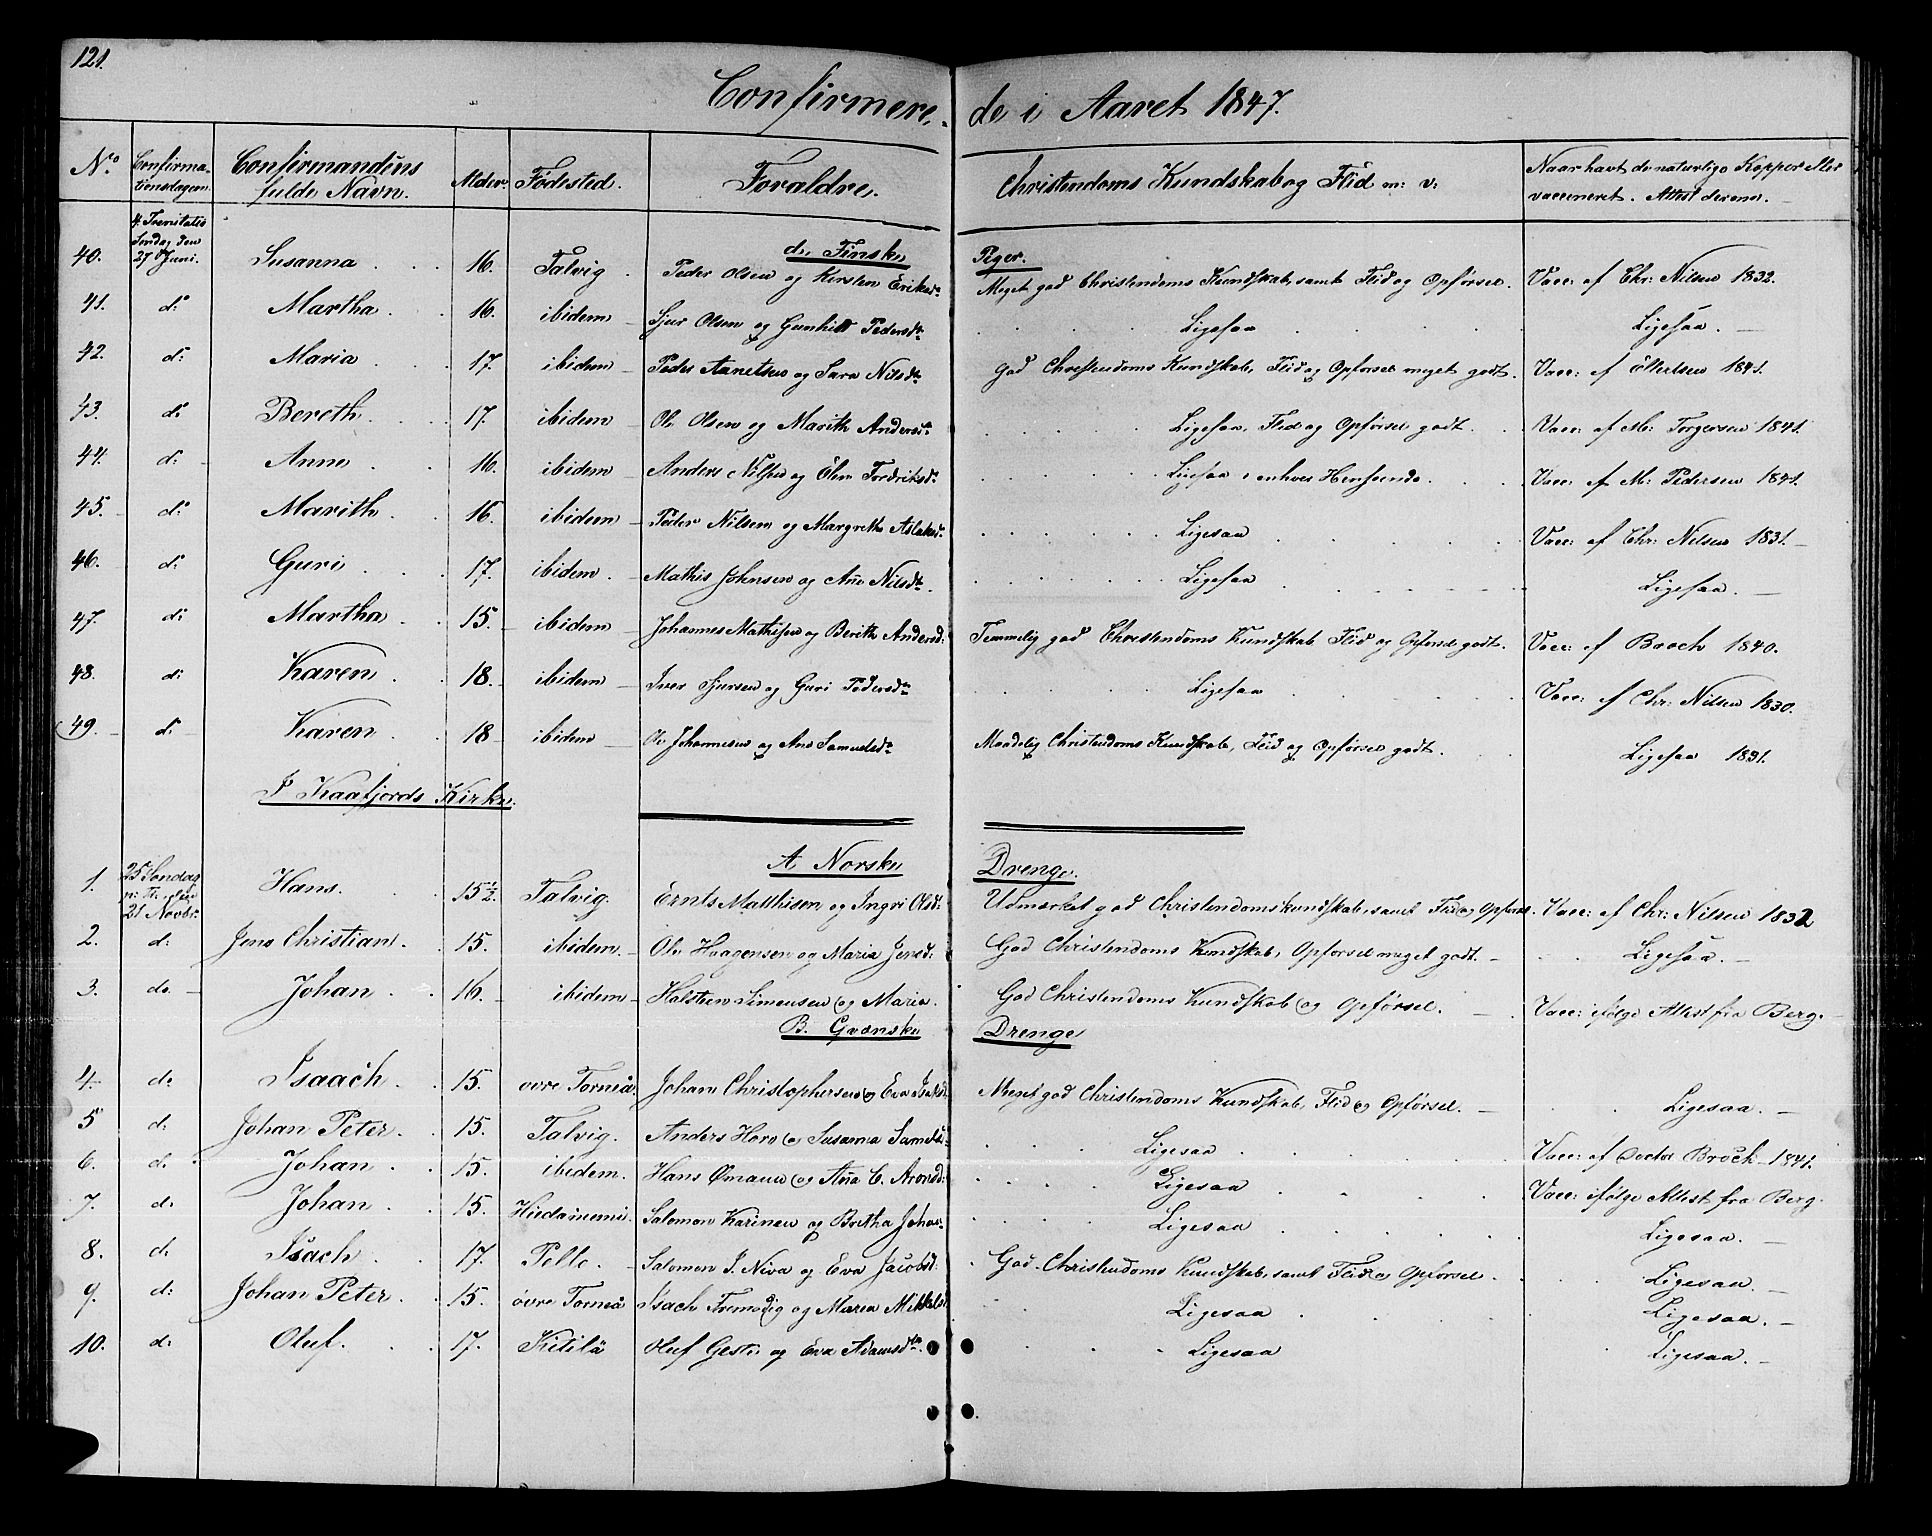 121.
Confirmere,- de i Aaret 1847.
No Confirmationsdagen. Confirmandens fulde Navn. Alder. Fødested. Forældre. Christendoms Kundskab og Flid m: v: Naar havt de naturlige Kopper eller vaccineret. Attest derom.
d. Finske Piger.
40. 4. Trenitatis Søndag den 27 Juni. Susanna 16. Talvig. Peder Olsen og Kirsten Eriksdr Meget god Christendoms Kundskab, samt Flid og Opførsel. Vacc: af Chr: Nilsen 1832.
41. d: Martha 16. ibidem Sjur Olsen og Gunhild Pedersdr Ligesaa Ligesaa.
42. d: Maria 17. ibidem Peder Aanetsen og Sara Nilsdr God Christendoms Kundskab, Flid og Opførsel meget godt. Vacc: af Ellertsen 1841.
43. d: Bereth 17. ibidem Ole Olsen og Marith Andersdr Ligesaa, Flid og Opførsel godt. Vacc: af M: Torgersen 1841.
44. d: Anne 16. ibidem Anders Nilsen og Elen Fredriksdr Ligesaa i enhver Henseende. Vacc: af M: Pedersen 1841.
45. d: Marith 16. ibidem Peder Nilsen og Margrethe Aslaksdr Ligesaa Vacc: af Chr: Nilsen 1831.
46. d: Guri 17. ibidem. Mathis Johnsen og Ane Nilsdr. Ligesaa Ligesaa.
47. d: Martha 15. ibidem Johannes Mathisen og Berith Andersd: Temmelig god Christendoms Kundskab, Flid og Opførsel godt. Vacc: af Broch 1840.
48. d: Karen 18. ibidem Iver Sjursen og Guri Pedersdr Ligesaa Vacc: af Chr: Nilsen 1830.
49. d: Karen 18 ibidem Ole Johannesen og Ane Samuelsdr Maadelig Christendoms Kundskab, Flid og Opførsel godt. Ligesaa 1831.
I Kaafjords Kirke.
A Norske Drenge.
1. 25 Søndag n: Tr: den 21 Novbr. Hans. 15½ Talvig. Ernts Matthisen og Ingri Olsd: Udmærket god Christendomskundskab, samt Flid og Opførsel. Vacc: af Chr: Nilsen 1832
2. d: Jens Christian. 15. ibidem. Ole Haagensen og Maria Jensd: God Christendoms Kundskab, Opførsel meget godt. Ligesaa.
3. do. Johan 16. ibidem Halsteen Simensen og Maria. God Christendoms Kundskab og Opførsel. Vacc: ifølge Attest fra Berg.
B. Qvænske Drenge
4. d: Isaach. 15. øvre Torneå. Johan Christophersen og Eva Isaksd: Meget god Christendoms Kundskab, Flid og Opførsel. Ligesaa.
5 d: Johan Peter. 15. Talvig. Anders Horo og Susanna Samelsd: Ligesaa Vacc: af Doctor Broch 1841.
6. d: Johan 15. ibidem. Hans Ømann og Ana C. Aronsd: Ligesaa Vacc: ifølge Attest fra Berg.
7. d: Johan 15. Hiedaniemi. Salomon Karinen og Bretha Johansdr Ligesaa Ligesaa.
8. d: Isach. 17. Pello. Salomon I. Niva og Eva Jacobsd: God Christendoms Kundskab, samt Flid og Opførsel. Ligesaa
9. d: Johan Peter. 15. øvre Torneå Isach Fremodig og Maria Mikkelsd: Ligesaa Ligesaa.
10. d: Oluf. 17. Kitilä Oluf og Eva Adamsdtr. Ligesaa Ligesaa.